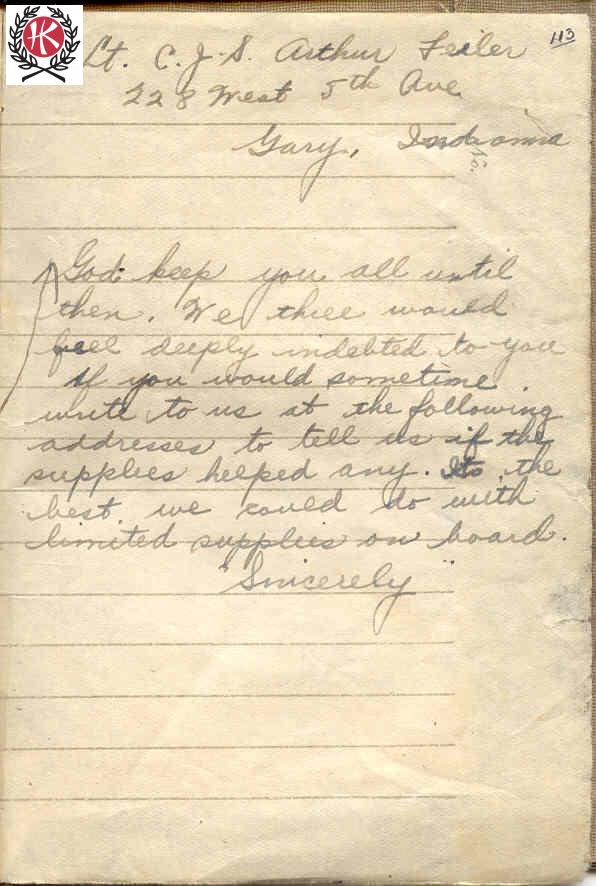 HK
113
Lt. C. J. S. Arthur Feiler
228 West 5th Ave
Gary, Indianna
God keep you all until
then. We three would
feel deeply indebted to you
if you would sometime
write to us at the following
addresses to tell us if the
supplies helped any. Its the
best we could do with
limited supplies on board.
Sincerely